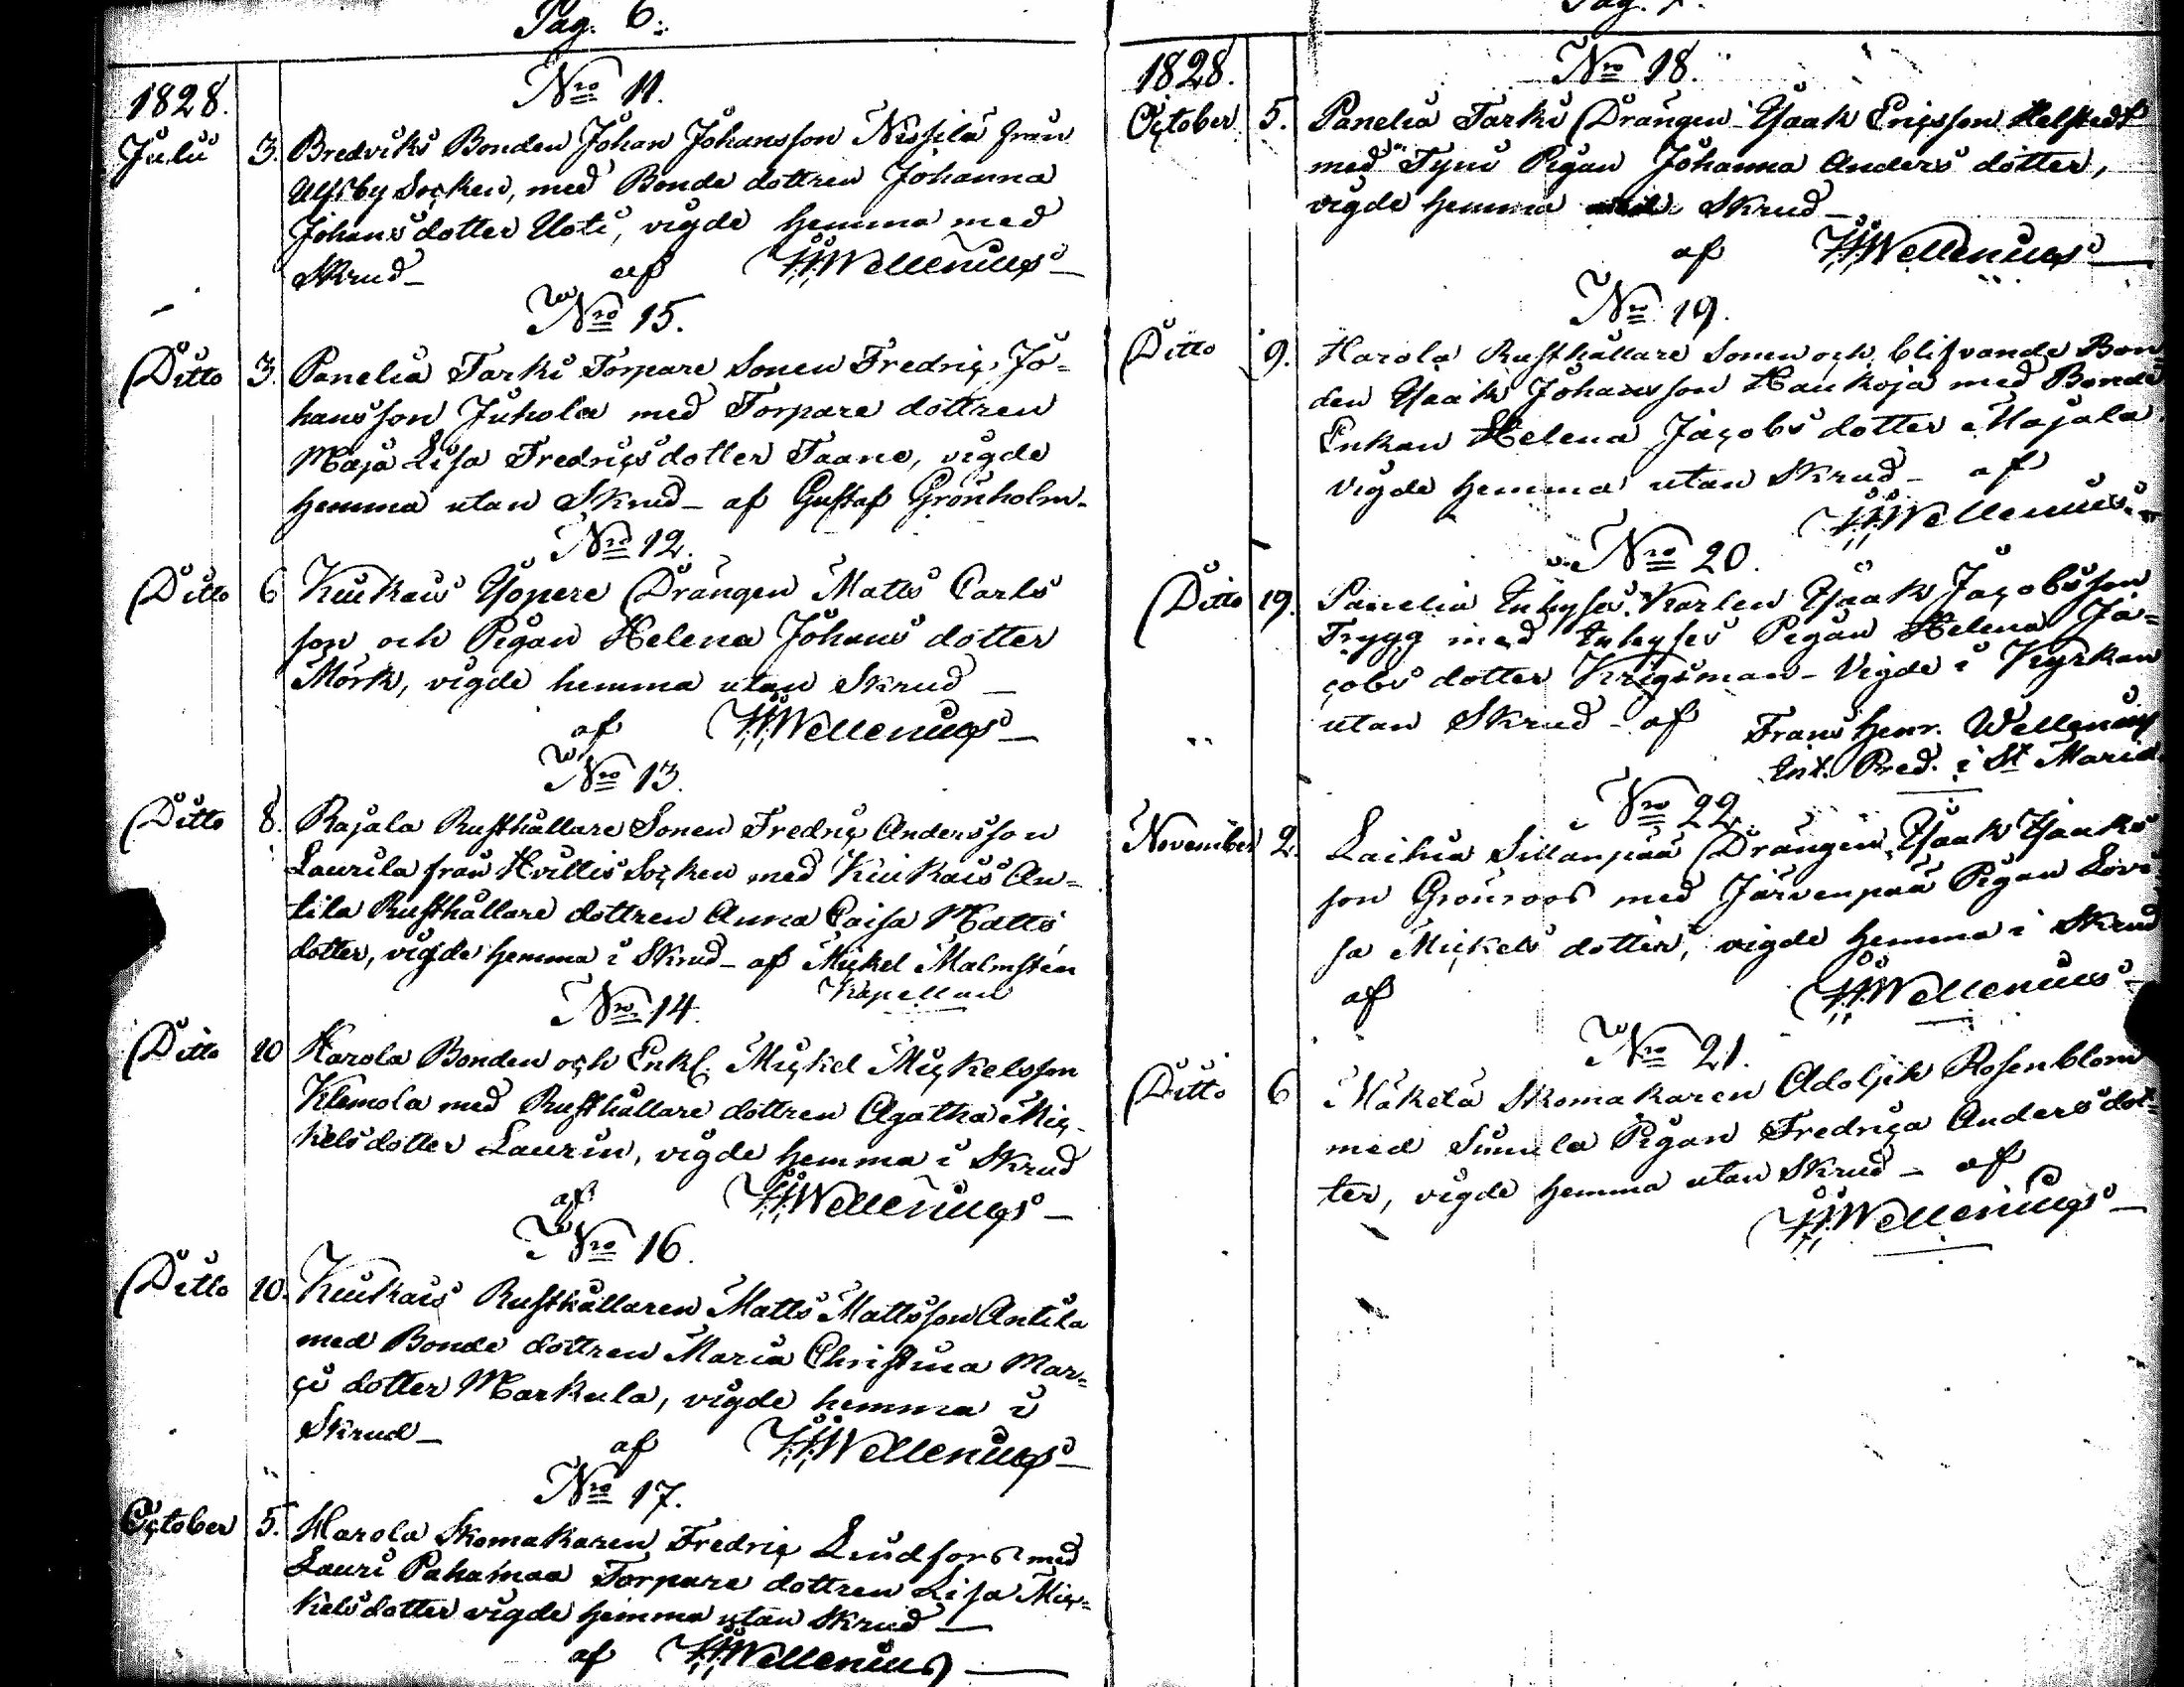 Pag. 6:
1828.
Nro 11.
Julii 3. Bredviks Bonden Johan Johansson Nissilä från
Ulfsby Socken, med Bonde dottren Johanna
Johans dotter Uoti, vigde hemma med
Skrud_ af Wellenius_
Nro 15.
Ditto 3. Panelia Tarki Torpare Sonen Fredric Jo=
hansson Juhola med Torpare dottren
Maja Lisa Fredricsdotter Taane, vigde
hemma utan Skrud_ af Gustaf Grönholm.
Nro 12.
Ditto 6 Kiukais Yopere Drängen Matts Carls
son och Pigan Helena Johans dotter
Mörk, vigde hemma utan Skrud _
af Wellenius_
Nro 13.
Ditto 8. Rajala Rusthållare Sonen Fredric Andersson
Laurila från Hvittis Socken med Kiukais An=
tila Rusthållare dottren Anna Caisa Matts
dotter, vigde hemma i Skrud_ af Mickel Malmstén
Kapellan
Nro 14.
Ditto 10 Harola Bonden och Enkl. Mickel Mickelsson
Klemola med Rusthållare dottren Agatha Mic-
kels dotter Laurin, vigde hemma i Skrud
af Wellenius_
Nro 16.
Ditto 10. Kiukais Rusthållaren Matts Mattsson Antila
med Bonde dottren Maria Christina Mar=
ci dotter Markula, vigde hemma i
Skrud_ af Wellenius_
Nro 17.
October 5. Harola Skomakaren Fredric Lindfors med
Lauri Pahamaa Torpare dottren Lisa Mic=
kels dotter vigde hemma utan Skrud _
af Wellenius
Pag. 7.
1828.
Nro 18.
October 5. Panelia Tarki Drängen Ysaak Ericsson Helstedt
med Pigan Johanna Anders dotter,
vigde hemma Skrud_
af Wellenius_
Nro 19.
Ditto 9. Harola Rusthållare Sonen och blifvande Bon=
den Ysaak Johansson Haukoja med Bonde
Enkan Helena Jacobs dotter Majala,
vigde hemma utan Skrud_ af
Wellenius.
Nro 20.
Ditto 19. Panelia Inhyses Karlen Ysaak Jacobsson
Trygg med Inhyses Pigan Helena Ja=
cobs dotter Krigsman_ Vigde i Kyrkan
utan Skrud_ af Frans Henr. Wellenius
Ext. Pred. i St Marie
Nro 22.
November 2. Laihia Sillanpää Drängen Ysaak Ysaaks
son Grönroos med Järvenpää Pigan Lovi
sa Mickels dotter, vigde hemma i Skrud
af Wellenius_
Nro 21.
Ditto 6 Mäkelä Skomakaren Adolph Rosenblom
med Pigan Fredrica Andersdot=
ter, vigde hemma utan Skrud_ af
Wellenius_